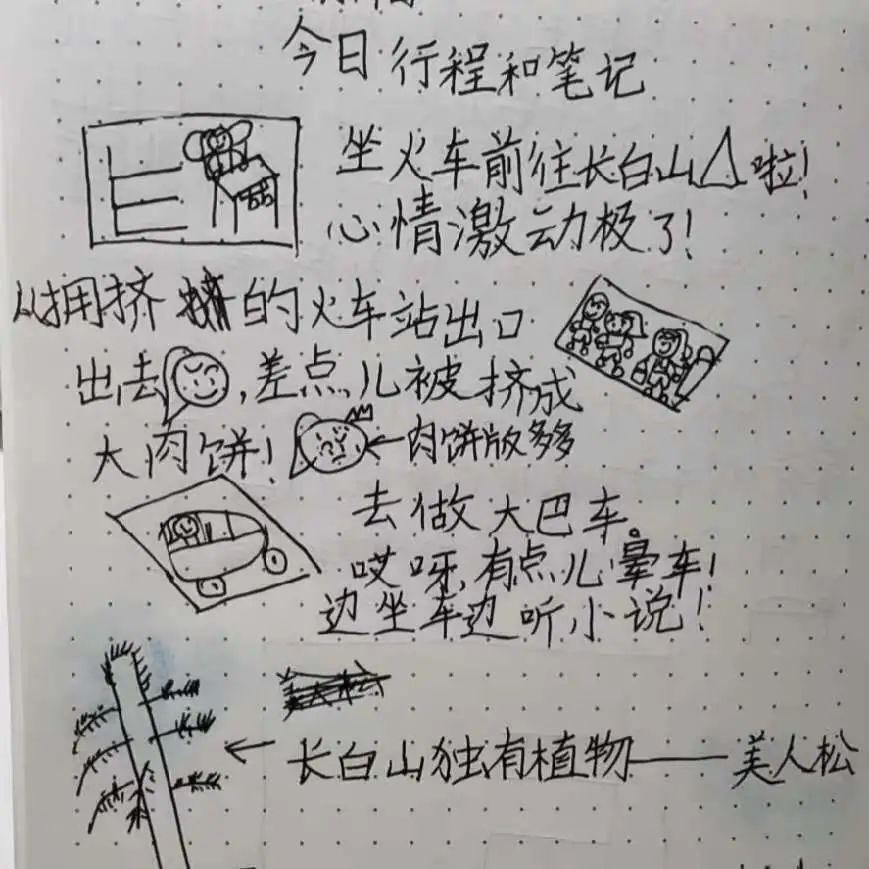 今日行程和笔记
坐火车前往长白山啦!
心情激动极了!
从拥挤的火车站出口
出去,差点儿被挤成
大肉饼!←肉饼版多多
去做大巴车。
哎呀,有点儿晕车!
边坐车边听小说!
美人松
←长白山独有植物——美人松